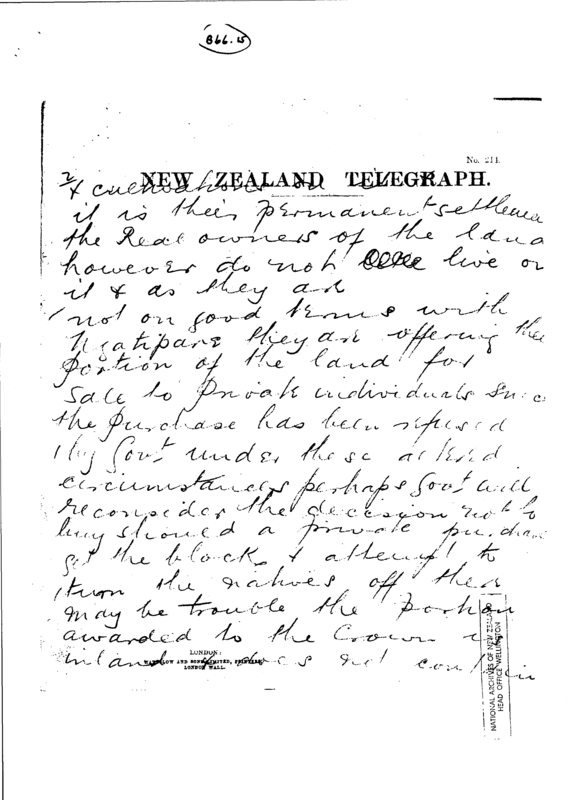 866.15
No. 211.
NEW ZEALAND TELEGRAPH.
2/
& cultivations on land
it is their permanent settleme
the Real owners of the land
however do not live on
it & as they are
not on good terms with
Ngatipare they are offering their
portion of the land for
sale to private individuals since
the purchase has been refused
by Govt under these altered
circumstances perhaps Govt will
reconsider the decision not to
buy should a private purchaser
get the block & attempt to
turn the natives off there
may be trouble the portion
awarded to the Crown is
inland & does not contain
LONDON:
WATERLOW AND SONS LIMITED, PRINTERS,
LONDON WALL.
NATIONAL ARCHIVES OF NEW ZEALAND
HEAD OFFICE WELLINGTON